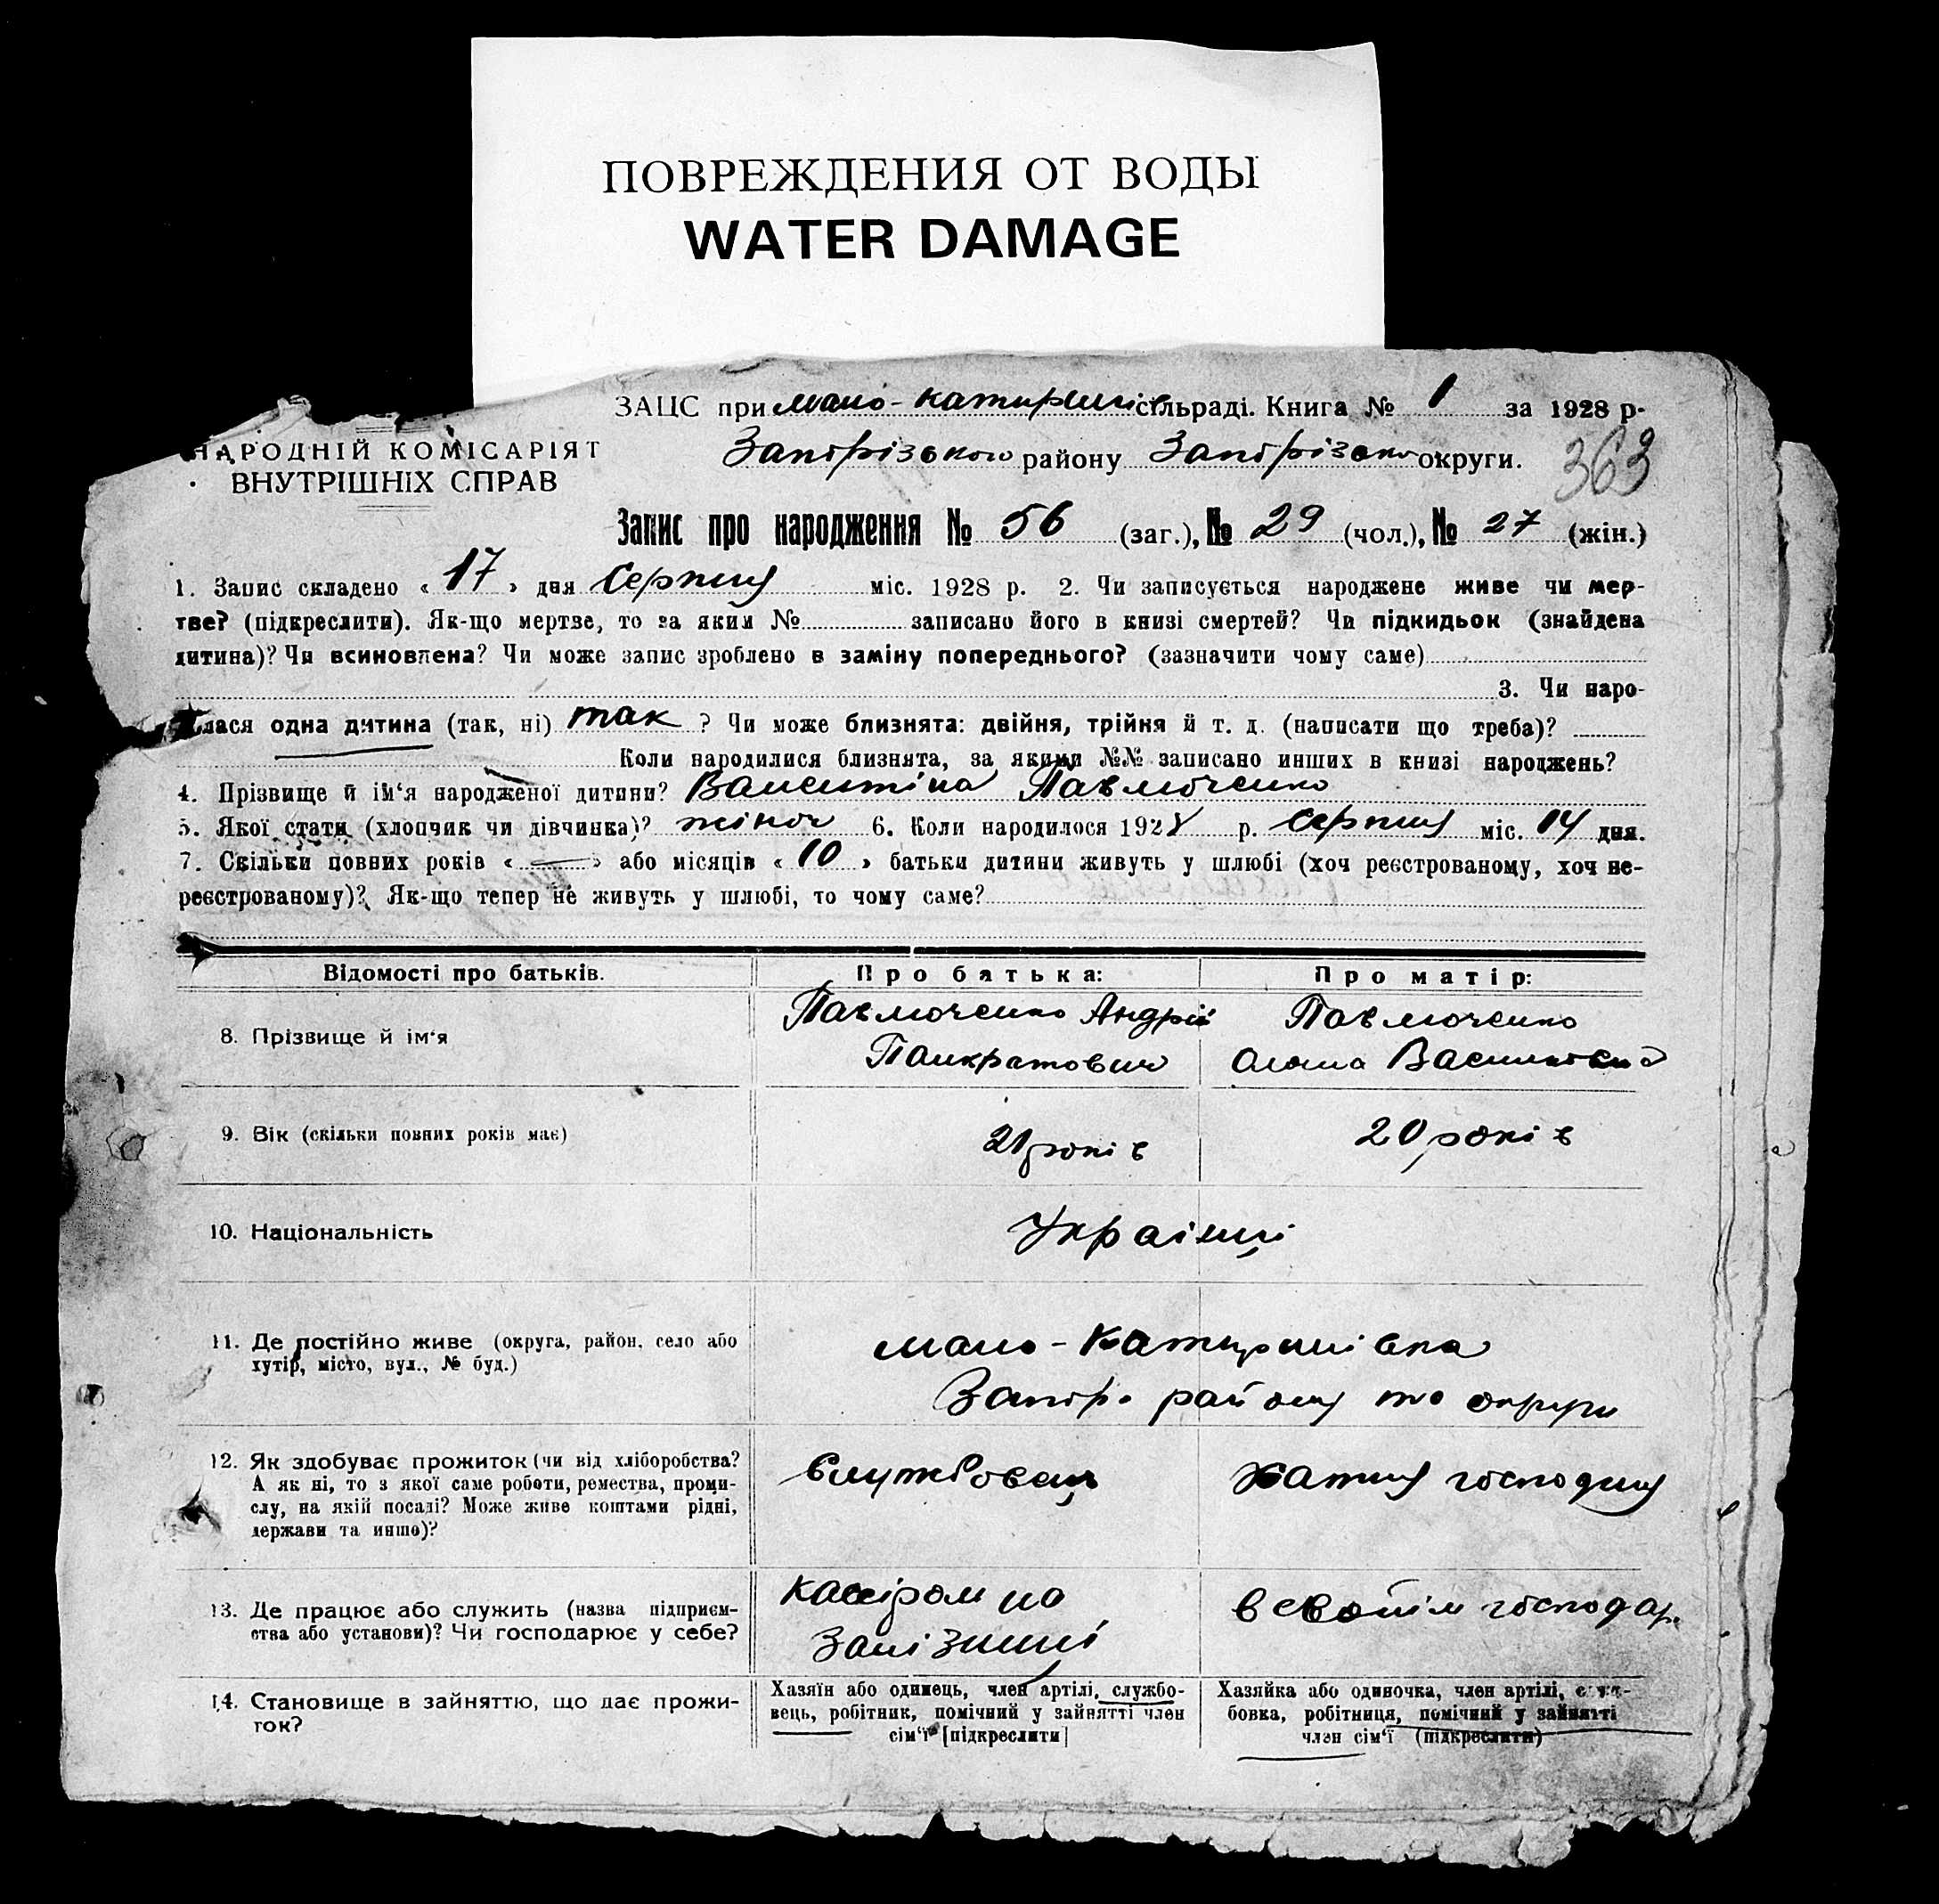 ПОВРЕЖДЕНИЯ ОТ ВОДЫ
WATER DAMAGE
ЗАЦС при мало-катирині сільраді. Книга № 1 за 1928 р.
НАРОДНІЙ КОМІСАРІЯТ
ВНУТРІШНІХ СПРАВ
Запорізького району Запорізько округи. 363
Запис про народження № 56 (заг.), № 29 (чол.), № 27 (жін.)
1. Запис складено « 17 » дня Серпня міс. 1928 р. 2. Чи записується народжене живе чи мер-
тве? (підкреслити). Як-що мертве, то за яким № записано його в книзі смертей? Чи підкидьок (знайдена
дитина)? Чи всиновлена? Чи може запис зроблено в заміну попереднього? (зазначити чому саме)
3. Чи наро-
лася одна дитина (так, ні) так ? Чи може близнята: двійня, трійня й т. д. (написати що треба)?
Коли народилися близнята, за якими №№ записано инших в книзі народжень?
4. Прізвище й ім'я народженої дитини? Валентіна Павлюченко
5. Якої стати (хлопчик чи дівчинка)? жіноч 6. Коли народилося 1928 р. Серпня міс. 14 дня.
7. Скільки повних років « — » або місяців « 10 » батьки дитини живуть у шлюбі (хоч реєстрованому, хоч не-
реєстрованому)? Як-що тепер не живуть у шлюбі, то чому саме?
Відомості про батьків. Про батька: Про матір:
8. Прізвище й ім'я
Павлюченко Андрій
Панкратович
Павлюченко
Олена Василівна
9. Вік (скільки повних років має) 21 років 20 років
10. Національність Українці
11. Де постійно живе (округа, район, село або
хутір, місто, вул., № буд.)
мало-Катиринівка
Запор. району та округи
12. Як здобуває прожиток (чи від хліборобства?
А як ні, то з якої саме роботи, ремества, проми-
слу, на якій посаді? Може живе коштами рідні,
держави та инше)?
Службовець
Хатня господиня
13. Де працює або служить (назва підприєм-
ства або установи)? Чи господарює у себе?
касіром на
Залізниці
в своїм господар.
14. Становище в зайняттю, що дає прожи-
ток?
Хазяїн або одинець, член артілі, службо-
вець, робітник, помічний у зайнятті член
сім'ї [підкреслити]
Хазяйка або одиночка, член артілі, служ-
бовка, робітниця, помічний у зайнятті
член сім'ї (підкреслити)